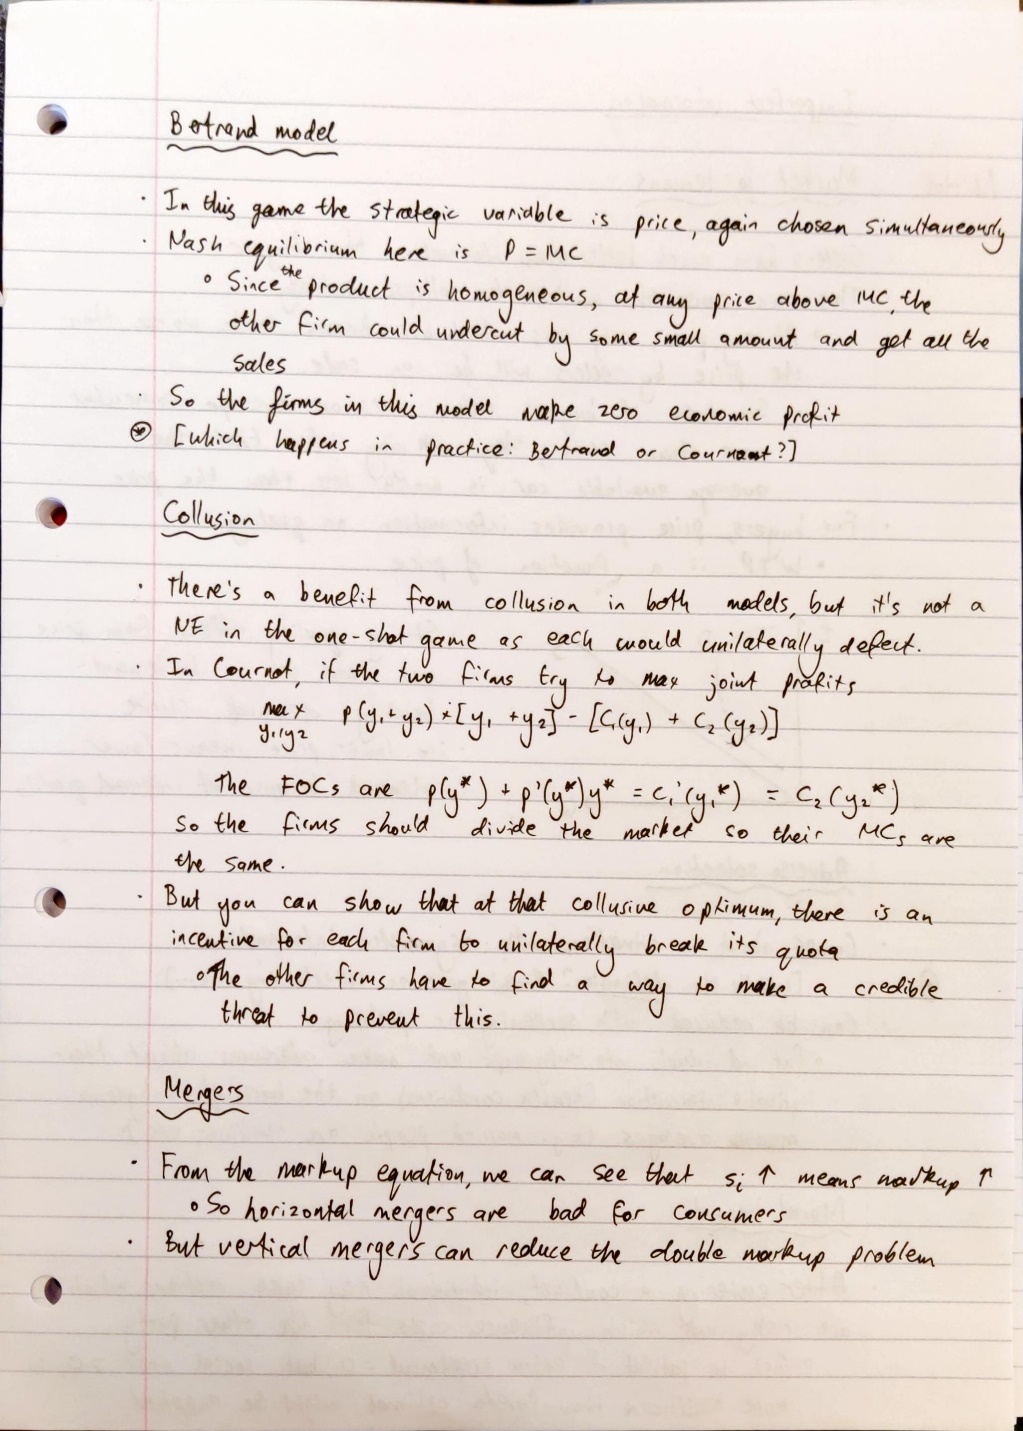 Bertrand model
· In this game the strategic variable is price, again chosen simultaneously
· Nash equilibrium here is P = MC
∘ Since the product is homogeneous, at any price above MC, the
other firm could undercut by some small amount and get all the
sales
· So the firms in this model make zero economic profit
[which happens in practice: Bertrand or Cournot?]
Collusion
· There's a benefit from collusion in both models, but it's not a
NE in the one-shot game as each would unilaterally defect.
· In Cournot, if the two firms try to max joint profits
max p(y₁+y₂) × [y₁ + y₂] - [C₁(y₁) + C₂(y₂)]
y₁,y₂
The FOCs are p(y*) + p'(y*)y* = c₁'(y₁*) = C₂(y₂*)
So the firms should divide the market so their MCs are
the same.
· But you can show that at that collusive optimum, there is an
incentive for each firm to unilaterally break its quota
∘ The other firms have to find a way to make a credible
threat to prevent this.
Mergers
· From the markup equation, we can see that sᵢ ↑ means markup ↑
∘ So horizontal mergers are bad for consumers
· But vertical mergers can reduce the double markup problem